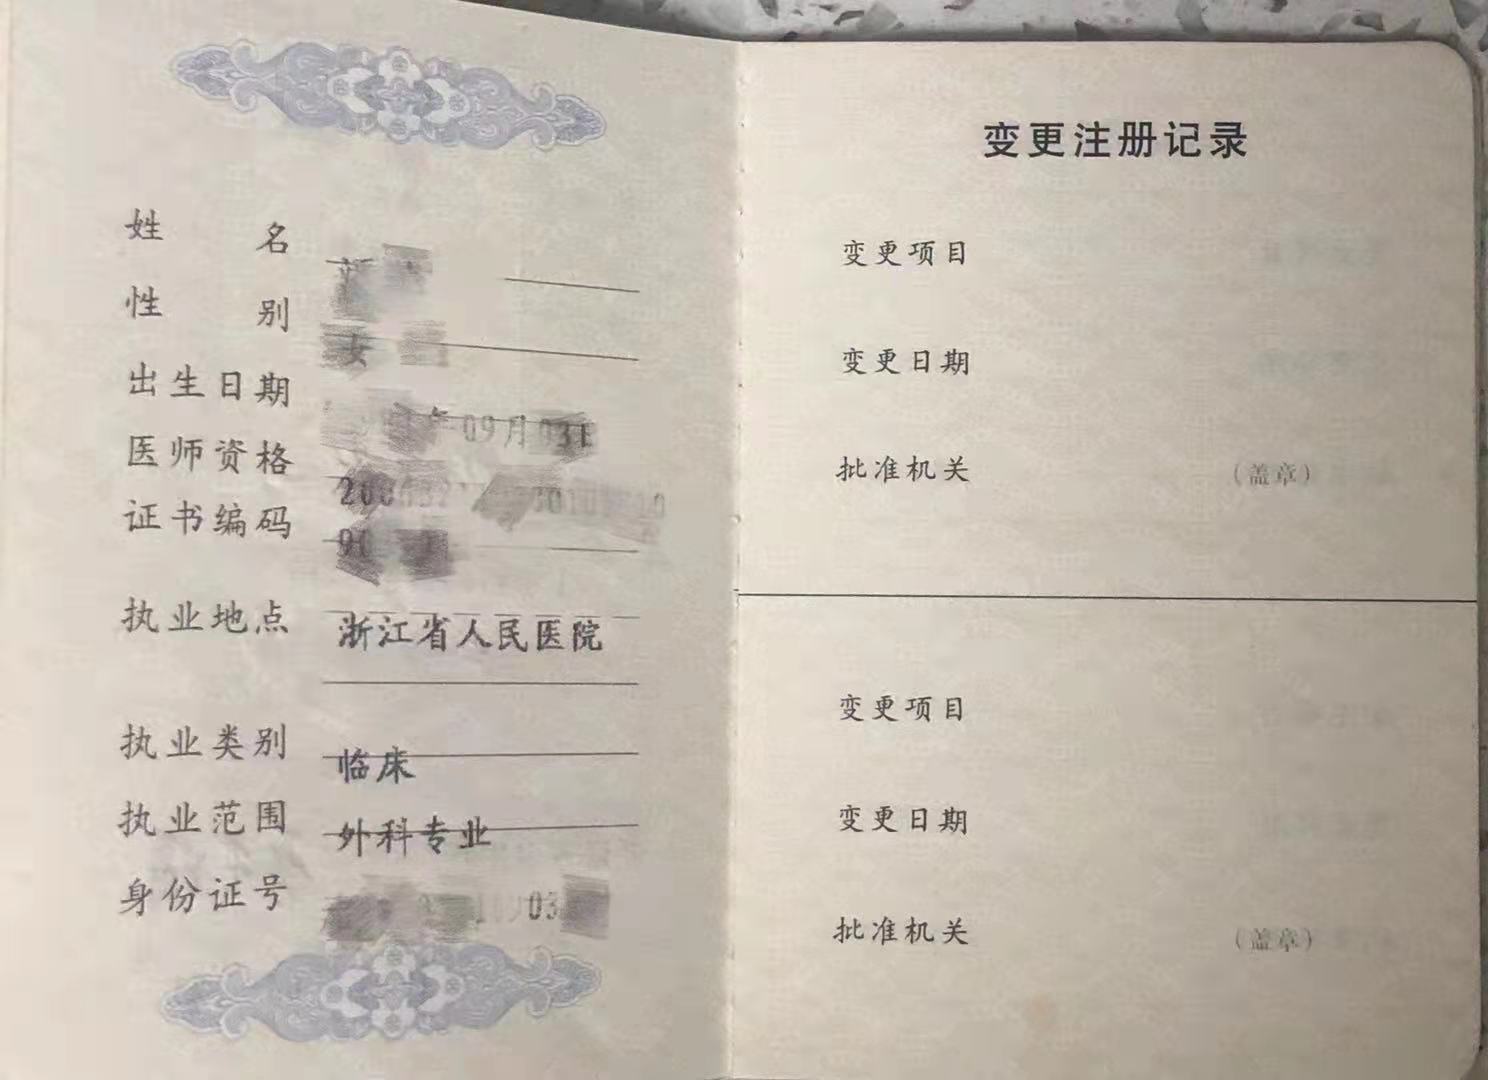 姓名
性别 女
出生日期 年09月03日
医师资格
证书编码
执业地点 浙江省人民医院
执业类别 临床
执业范围 外科专业
身份证号
变更注册记录
变更项目
变更日期
批准机关 （盖章）
变更项目
变更日期
批准机关 （盖章）